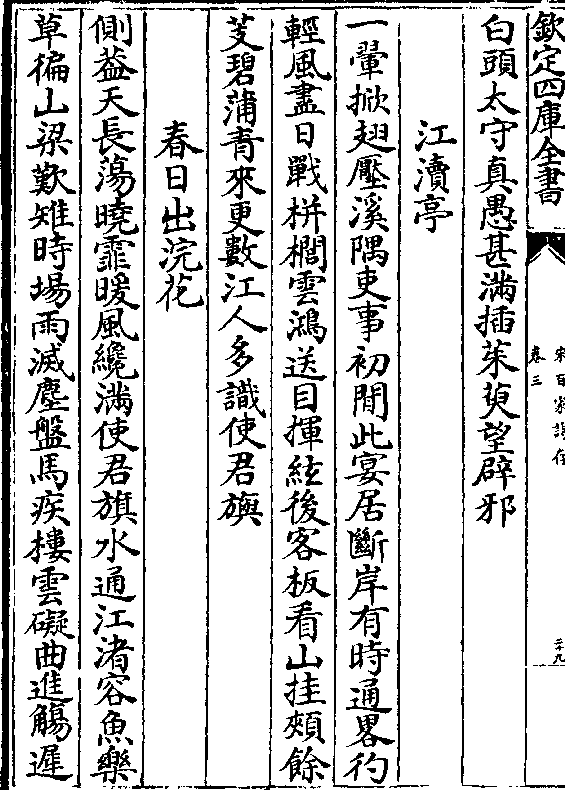 欽定四庫全書
宋百家詩存
卷三
二十九
白頭太守真愚甚滿插茱萸望辟邪
江瀆亭
一翬掀翅壓溪隅吏事初閒此宴居斷岸有時通畧彴
輕風盡日戰栟櫚雲鴻送目揮絃後客板看山拄頰餘
芰碧蒲青來更數江人多識使君旟
春日出浣花
側葢天長蕩曉霏暖風纔滿使君旗水通江渚容魚樂
草徧山梁歎雉時場雨滅塵盤馬疾樓雲礙曲進觴遲